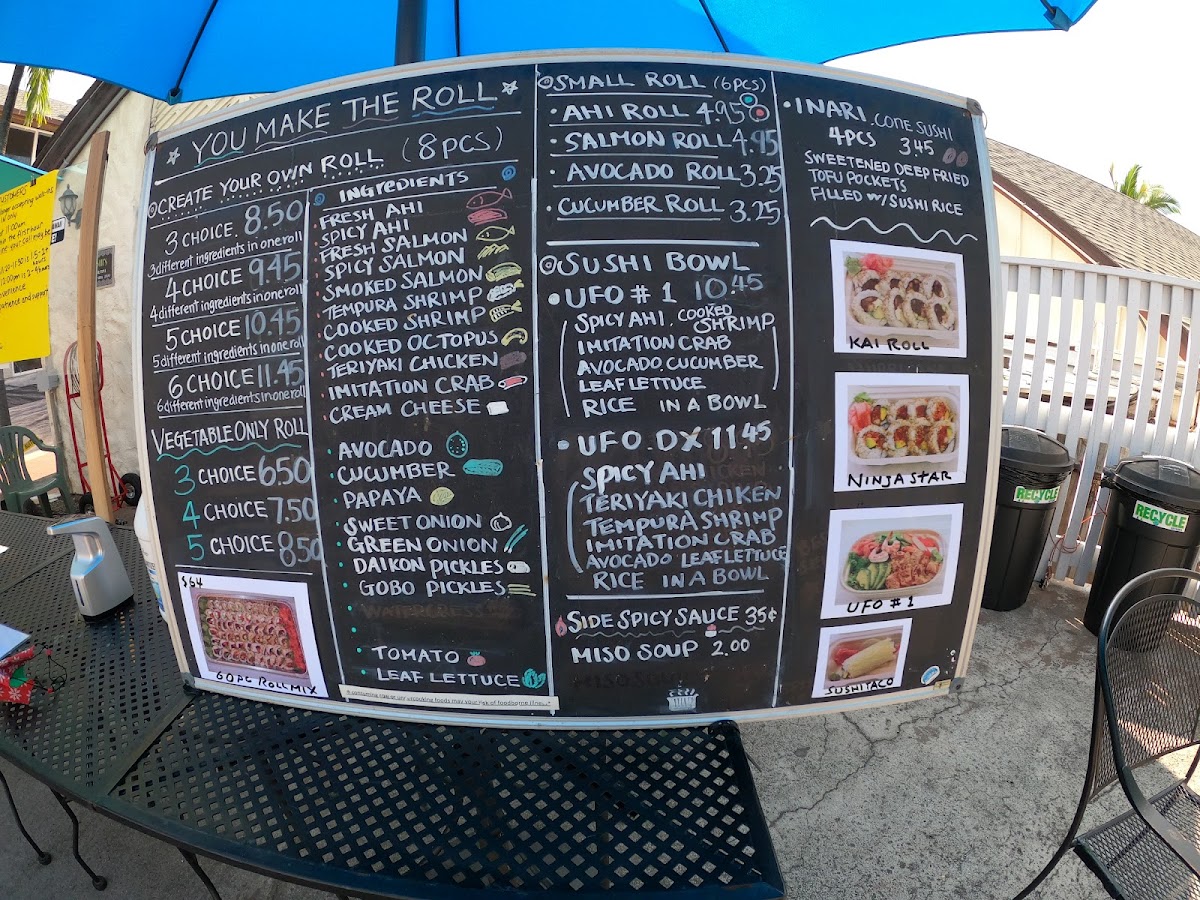 YOU MAKE THE ROLL
CREATE YOUR OWN ROLL (8PCS)
3 CHOICE. 8.50
3 different ingredients in one roll
4 CHOICE 9.45
4 different ingredients in one roll
5 CHOICE 10.45
5 different ingredients in one roll
6 CHOICE 11.45
6 different ingredients in one roll
VEGETABLE ONLY ROLL
3 CHOICE 6.50
4 CHOICE 7.50
5 CHOICE 8.50
$64
60PC ROLL MIX
INGREDIENTS
FRESH AHI
SPICY AHI
FRESH SALMON
SPICY SALMON
SMOKED SALMON
TEMPURA SHRIMP
COOKED SHRIMP
COOKED OCTOPUS
TERIYAKI CHICKEN
IMITATION CRAB
CREAM CHEESE
AVOCADO
CUCUMBER
PAPAYA
SWEET ONION
GREEN ONION
DAIKON PICKLES
GOBO PICKLES
WATERCRESS
TOMATO
LEAF LETTUCE
SMALL ROLL (6PCS)
AHI ROLL 4.95
SALMON ROLL 4.95
AVOCADO ROLL 3.25
CUCUMBER ROLL 3.25
SUSHI BOWL
UFO # 1 10.45
SPICY AHI. COOKED SHRIMP
IMITATION CRAB
AVOCADO. CUCUMBER
LEAF LETTUCE
RICE IN A BOWL
UFO. DX 11.45
SPICY AHI
TERIYAKI CHIKEN
TEMPURA SHRIMP
IMITATION CRAB
AVOCADO LEAF LETTUCE
RICE IN A BOWL
SIDE SPICY SAUCE 35¢
MISO SOUP 2.00
MISO SOUP
INARI. CONE SUSHI
4PCS 3.45
SWEETENED DEEP FRIED
TOFU POCKETS
FILLED W/ SUSHI RICE
KAI ROLL
NINJA STAR
UFO # 1
SUSHI TACO
RECYCLE
RECYCLE